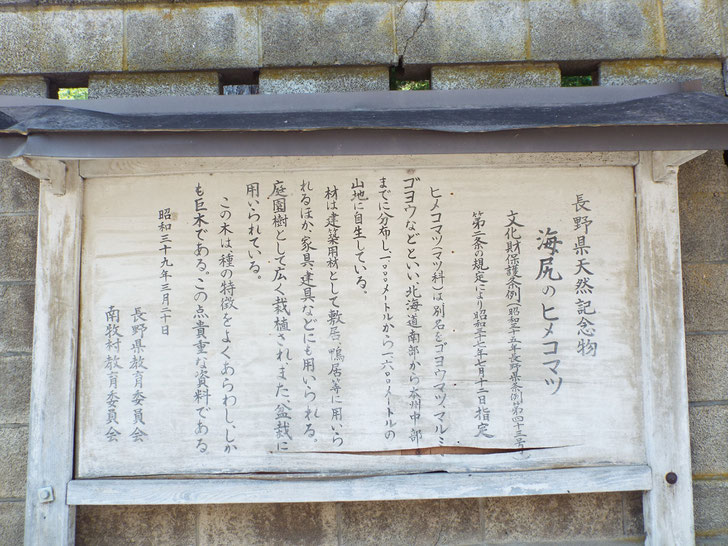 長野県天然記念物
海尻のヒメコマツ
文化財保護条例(昭和三十五年長野県条例第四十三号)
第二条の規定により昭和三十七年七月十二日指定
ヒメコマツ(マツ科)は別名をゴヨウマツ、マルミ
ゴヨウなどといい、北海道南部から本州中部
までに分布し、一〇〇〇メートルから一六〇〇メートルの
山地に自生している。
材は建築用材として敷居、鴨居等に用いら
れるほか、家具、建具などにも用いられる。
庭園樹として広く栽植され、また、盆栽に
用いられている。
この木は種の特徴をよくあらわし、しか
も巨木である。この点貴重な資料である
昭和三十九年三月二十日
長野県教育委員会
南牧村教育委員会